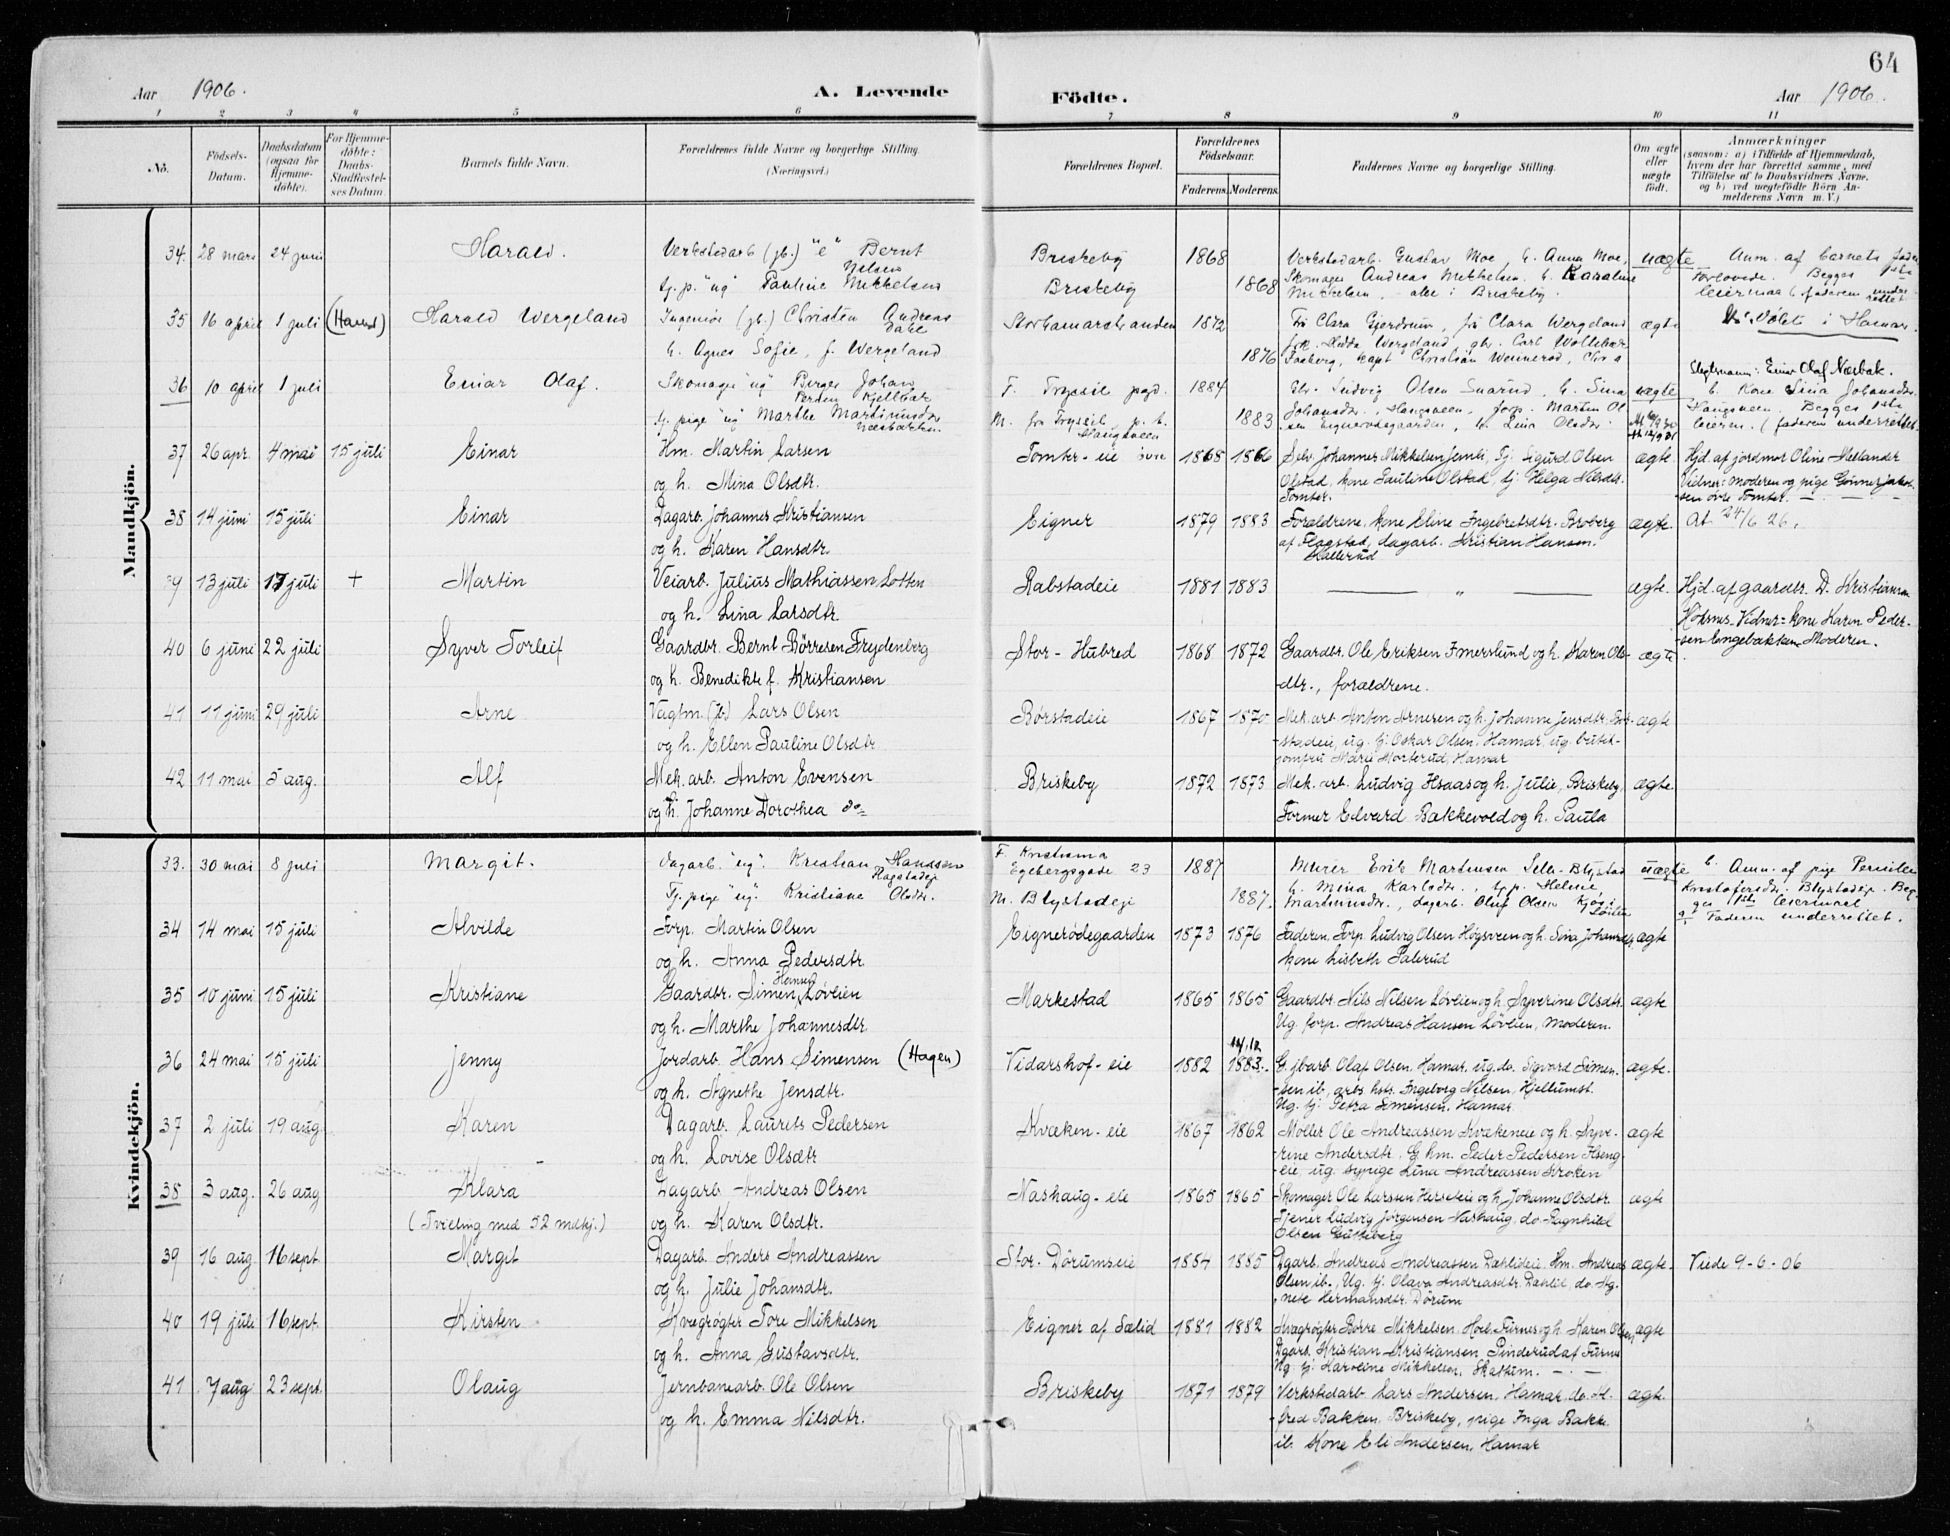 64
Aar 1906. A. Levende Födte. Aar 1906.
1 2 3 4 5 6 7 8 9 10 11
No. Födsels-Datum. Daabsdatum (ogsaa for Hjemmedöbte). For Hjemmedöbte: Daabs-Stadfæstelses Datum Barnets fulde Navn. Forældrenes fulde Navne og borgerlige Stilling. (Næringsvei.) Forældrenes Bopæl. Forældrenes Födselsaar. Faderens. Moderens. Faddernes Navne og borgerlige Stilling. Om ægte eller uægte födt. Anmærkninger (saasom: a) i Tilfælde af Hjemmedaab, hvem der har forrettet samme, med Tilföielse af to Daabsvidners Navne. og b) ved uægtefödte Börn Anmelderens Navn m. V.)
Mandkjön.
34. 28 mars 24 juni Harald. Verkstedarb (jb.) "e" Bernt Nilsen Briskeby 1868 Verkstedarb. Gustav Moe, h. Anna Moe, uægte Anm. af barnets fader
tj. p. "ug" Pauline Mikkelsen Briskeby 1868 Skomager Andreas Mikkelsen, h. Karoline Forlovede. Begges 1ste
Mikkelsen, alle i Briskeby. leiermaal (faderen underrettet
35 16 april 1 juli (Hamar) Harald Wergeland Ingeniør (jb.) Christen Andreas Storhamarstranden 1872 Fru Clara Gjerdrum, fru Clara Wergeland ægte i Hamar.
h. Agnes Sofie, f. Wergeland 1876 frk. Hedda Wergeland,
36 10 april 1 juli Einar Olaf. Skomager "ug" Birger Johan F. Trysil pgd. 1884 Gbr. Ludvig Olsen h. Sina uægte Slegtsnavn: Einar Olaf Næsbak.
tj. pige "ug" Marthe Martinusdr M. fra Trysil, 1883 Johansdr. Haugsveen, Begges 1ste
leierm. (faderen underrettet.
37 26 apr. 4 mai 15 juli Einar Hm. Martin Larsen Tomter-eie øvre 1865 1866 Selv. Johannes Mikkelsen Jemli, tj. Sigurd Olsen ægte Hjd. af jordmor Oline Mellander
og h. Mina Olsdtr. Olstad, kone Pauline Olstad, tj. Helga Nilsdtr. Vidner: moderen og pige Gunner Jakob-
Tomter. sen øvre Tomter.
38 14 juni 15 juli Einar Dagarb. Johannes Kristiansen Eigner 1879 1883 Forældrene, kone Eline Ingebretsdtr. Broberg ægte. At. 24/6 26.
og h. Karen Hansdtr. af Flagstad, dagarb. Kristian Hansen.
39 13 juli 17 juli + Martin Veiarb. Julius Mathiassen Lotten Rabstadeie 1881 1883 — „ — ægte. Hjd. af gaardbr. D. Kristiansen
og h. Lina Larsdtr. Vidner: kone Karen Peder-
sen Engebakken Moderen.
40 6 juni 22 juli Syver Torleif Gaardbr. Bernt Börresen Frydenberg Stor-Hubred 1868 1872 Gaardbr. Ole Eriksen Imerslund og h. Karen Ols- ægte.
og h. Benedikte f. Kristiansen -dtr., forældrene.
41 11 juni 29 juli Arne Vagtm. (jb) Lars Olsen Børstadeie 1867 1870 Mek. arb. Anton Arnesen og h. Johanne Jensdtr. Bør- ægte
og h. Ellen Pauline Olsdtr. -stadeie, ug. tj. Oskar Olsen, Hamar, ug. butik-
jomfru Marie Morterud, Hamar
42 11 mai 5 aug. Alf Mek. arb. Anton Evensen Briskeby 1872 1873 Mek. arb. Ludvig Hsaas og h. Julie, Briskeby, ægte
og h. Johanne Dorothea do Former Edvard Bakkevold og h. Paula
Kvindekjön.
33. 30 mai 8 juli Margit. Dagarb. "ug". Kristian Hanssen Flagstadeje F. Kristiania Egebergsgade 23 1887 Murer Erik Martinsen uægte h. Anm. af pige Pernille
Tj. pige "ug" Kristiane Olsdr. M. Blystadeje 1887. h. Mina Karlsdr., tj. p. Helene Kristofersdr. Blystadeje. Beg-
Martinusdr., dagarb. Oluf Olsen ges 1ste leiermaal
Faderen underrettet.
34 14 mai 15 juli Alvilde Forp. Martin Olsen Eignerødegaarden 1873 1876 Faderen, Forp. Ludvig Olsen Høgsveen og h. Sina Johansdtr. ægte
og h. Anna Pedersdtr. Kone Lisbeth Salerud
35 10 juni 15 juli Kristiane Gaardbr. Simen Hansen Løvlien Markestad 1865 1865 Gaardbr. Nils Nilsen Løvlien og h. Syverine Olsdtr. ægte
og h. Marthe Johannesdtr. Ug. forp. Andreas Hansen Løvlien, Moderen.
36 24 mai 15 juli Jenny Jordarb. Hans Simensen (Hagen) Vidarshof-eie 1882 11/12 1883. G. jbarb. Olaf Olsen, Hamar, ug. do. Sigvard Simen- ægte.
og h. Agnethe Jensdtr. -sen ib., arbs. hst. Ingeborg Nilsen, Hjellumst.
Ug. tj. Petra Simensen, Hamar
37 2 juli 19 aug. Karen Dagarb. Laurits Pedersen Kvæken-eie 1867 1862 Møller Ole Andreassen Kvækeneie og h. Syve- ægte
og h. Lovise Olsdtr -rine Andersdtr. G. hm. Peder Pedersen
-eie, ug. sypige Lina Andreassen Kroken
38 3 aug. 26 aug Klara Dagarb. Andreas Olsen Nashaug-eie 1865 1865 Skomager Ole Larsen Herseteie og h. Johanne Olsdtr. ægte
(Tvilling med 52 mdkj.) og h. Karen Olsdtr. Tjener Ludvig Jørgensen Nashaug, do. Ragnhild
Olsen Gutteberg
39 16 aug. 16 sept. Margit Dagarb. Anders Andreassen Stor-Dörumseie 1884 1885 Dgarb. Andreas Andreassen Dahlideie, Hm. Andreas ægte. Viede 9-6-06
og h. Julie Johansdtr. Olsen ib., Ug. tj. Olava Andreasdtr. Dahlie, do. Ag-
nete Hermansdtr. Dörum
40 19 juli 16 sept. Kirsten Kvægrøgter Tore Mikkelsen Eigner af Sælid 1881 1882 Kvægrøgter Börre Mikkelsen, Hoel Furnes og h. Karen Olsen, ægte
og h. Anna Gustavsdtr. Dgarb. Kristian Kristiansen, Pinderud af Furnes
Ug. tj. Karoline Mikkelsen, Skattum. — . —
41 7 aug. 23 sept. Olaug Jernbanearb. Ole Olsen Briskeby 1871 1879 Verkstedarb. Lars Andersen, Hamar, do. Al- ægte.
og h. Emma Nilsdtr. -fred Bakken, Briskeby, pige Inga Bakke
ib. Kone Eli Andersen, Hamar